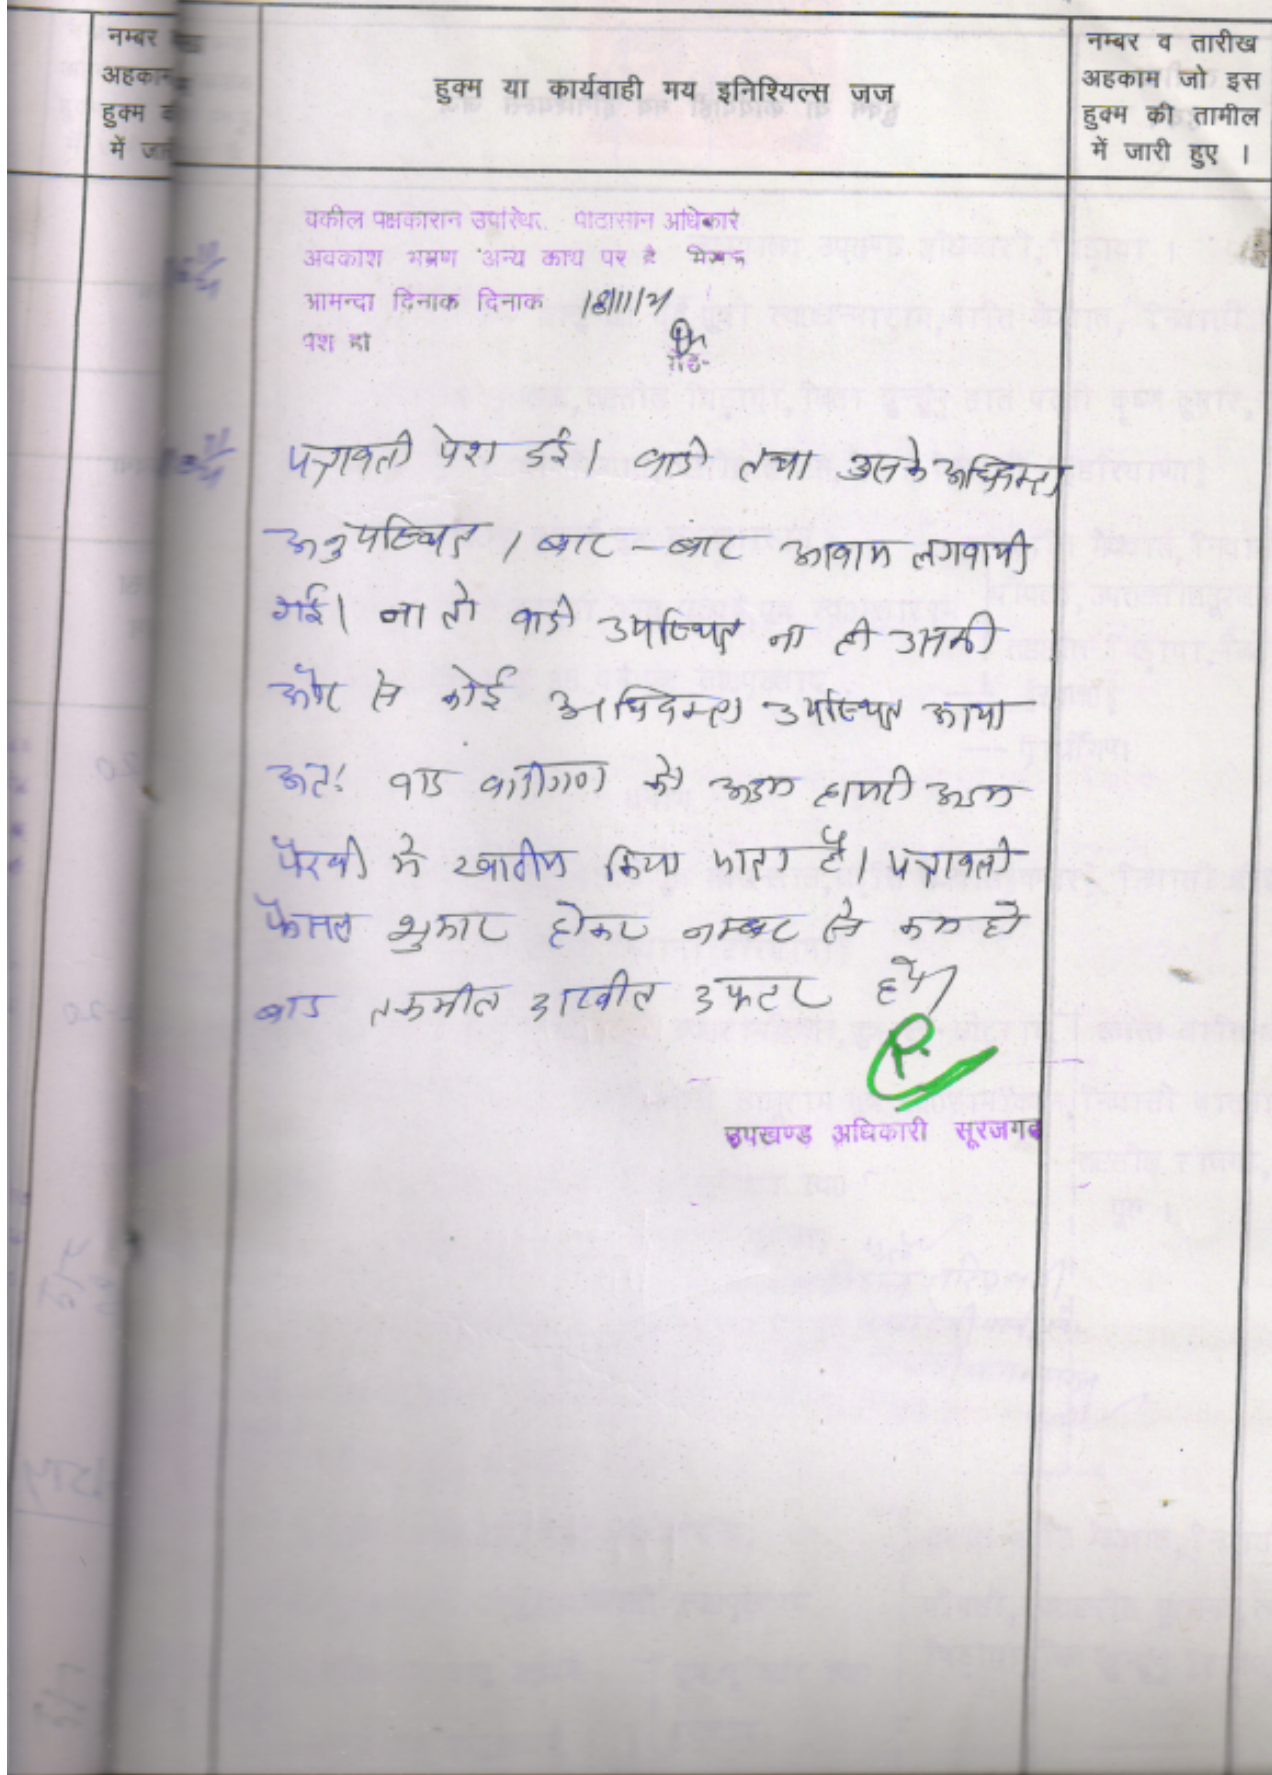 नम्बर
अहकाम
हुक्म
में जा
हुक्म या कार्यवाही मय इनिशियल्स जज
नम्बर व तारीख
अहकाम जो इस
हुक्म की तामील
में जारी हुए ।
वकील पक्षकारान उपस्थित. पीठासीन अधिकारी
अवकाश भ्रमण अन्य कार्य पर है मिसल
आमन्दा दिनांक दिनांक 18/11/21
पेश हो
पत्रावली पेश हुई। वादी तथा उसके अधिवक्ता
अनुपस्थित । बार-बार आवाज लगवायी
गई। ना तो वादी उपस्थित ना ही उसकी
ओर से कोई अधिवक्ता उपस्थित आया
अतः वाद वादीगण को अदम हाजरी अदम
पैरवी में खारीज किया जाता है। पत्रावली
फैसल शुमार होकर नम्बर से कम हो
बाद तकमील दाखील दफ्तर होवे।
उपखण्ड अधिकारी सूरजगढ